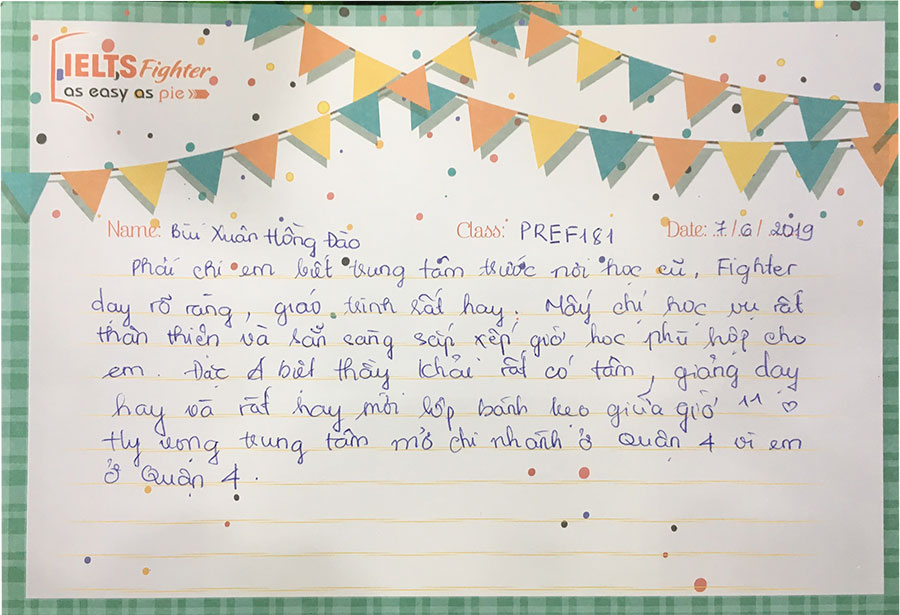 IELTS Fighter
as easy as pie
Name: Bùi Xuân Hồng Đào Class: PREF181 Date: 7/6/2019
Phải chi em biết trung tâm trước nơi học cũ, Fighter
dạy rõ ràng, giáo trình rất hay. Mấy chị học vụ rất
thân thiện và sẵn sàng sắp xếp giờ học phù hợp cho
em. Đặc biệt thầy Khải rất có tâm, giảng dạy
hay và rất hay mời lớp bánh kẹo giữa giờ ^^ ♡
Hy vọng trung tâm mở chi nhánh ở Quận 4 vì em
ở Quận 4.